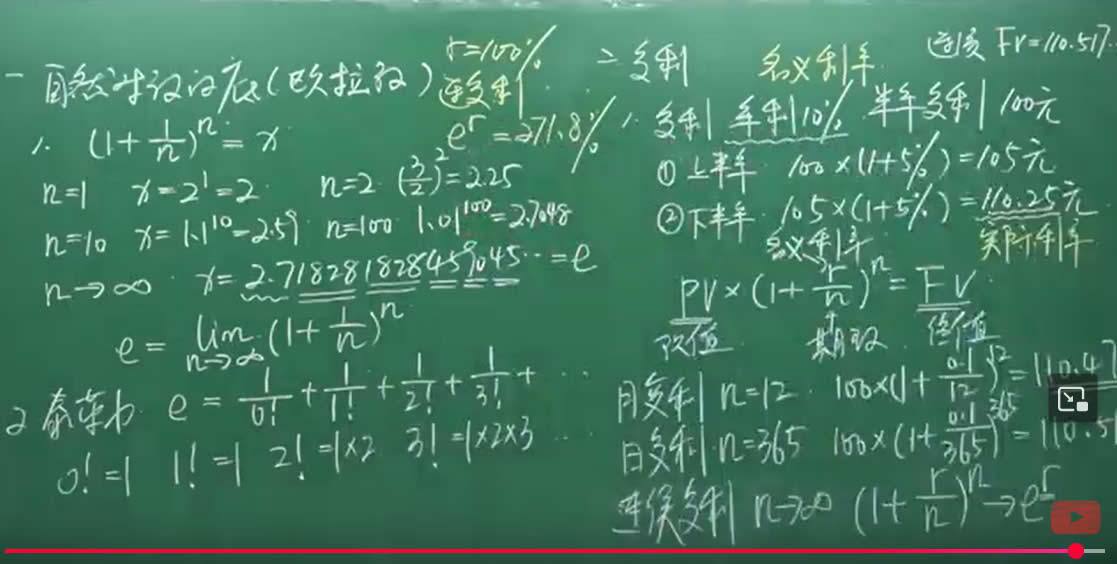 一 自然对数的底(欧拉数)
r=100%
连复利
e^r = 271.8%
1. (1+1/n)^n = x
n=1 x=2^1=2. n=2 (3/2)^2=2.25
n=10 x=1.1^10=2.59 n=100 1.01^100=2.7048
n→∞ x=2.718281828459045…=e
e = lim n→∞ (1+1/n)^n
2 泰勒 e = 1/0! + 1/1! + 1/2! + 1/3! + …
0!=1 1!=1 2!=1×2 3!=1×2×3 …
二 复利 名义利率
连续 FV=110.517
1. 复利 年利10% 半年复利 100元
① 上半年 100×(1+5%)=105元
② 下半年 105×(1+5%)=110.25元
名义利率 实际利率
PV×(1+r/n)^n=FV
现值 期数 终值
月复利 n=12 100×(1+0.1/12)^12=110.47
日复利 n=365 100×(1+0.1/365)^365=110.51
连续复利 n→∞ (1+r/n)^n→e^r